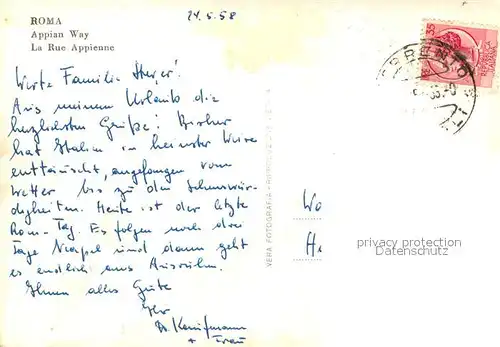 24.5.58
ROMA
Appian Way
La Rue Appienne
Werte Familie
Aus meinem Urlaub die
herzlichsten Grüße! Bisher
hat Italien in keinster Weise
enttäuscht, angefangen vom
Wetter bis zu den Sehenswür-
digkeiten. Heute ist der letzte
Rom-Tag. Es folgen noch drei
Tage Neapel und dann geht
es endlich ans Ausruhn.
Ihnen alles Gute
Ihr
Kauffmann
+ Frau
VERA FOTOGRAFIA
35
Wo
Ha
privacy protection
Datenschutz